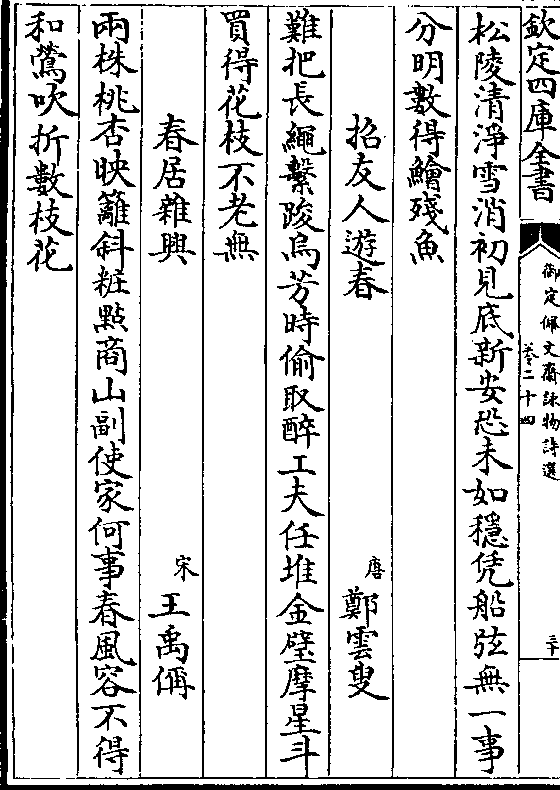 欽定四庫全書
御定佩文齋詠物詩選
卷二十四
三十
松陵清淨雪消初見底新安恐未如穩凭船舷無一事
分明數得鱠殘魚
招友人遊春
唐鄭雲叟
難把長繩繫踆烏芳時偷取醉工夫任堆金璧摩星斗
買得花枝不老無
春居雜興
宋王禹偁
兩株桃杏映籬斜粧點商山副使家何事春風容不得
和鶯吹折數枝花